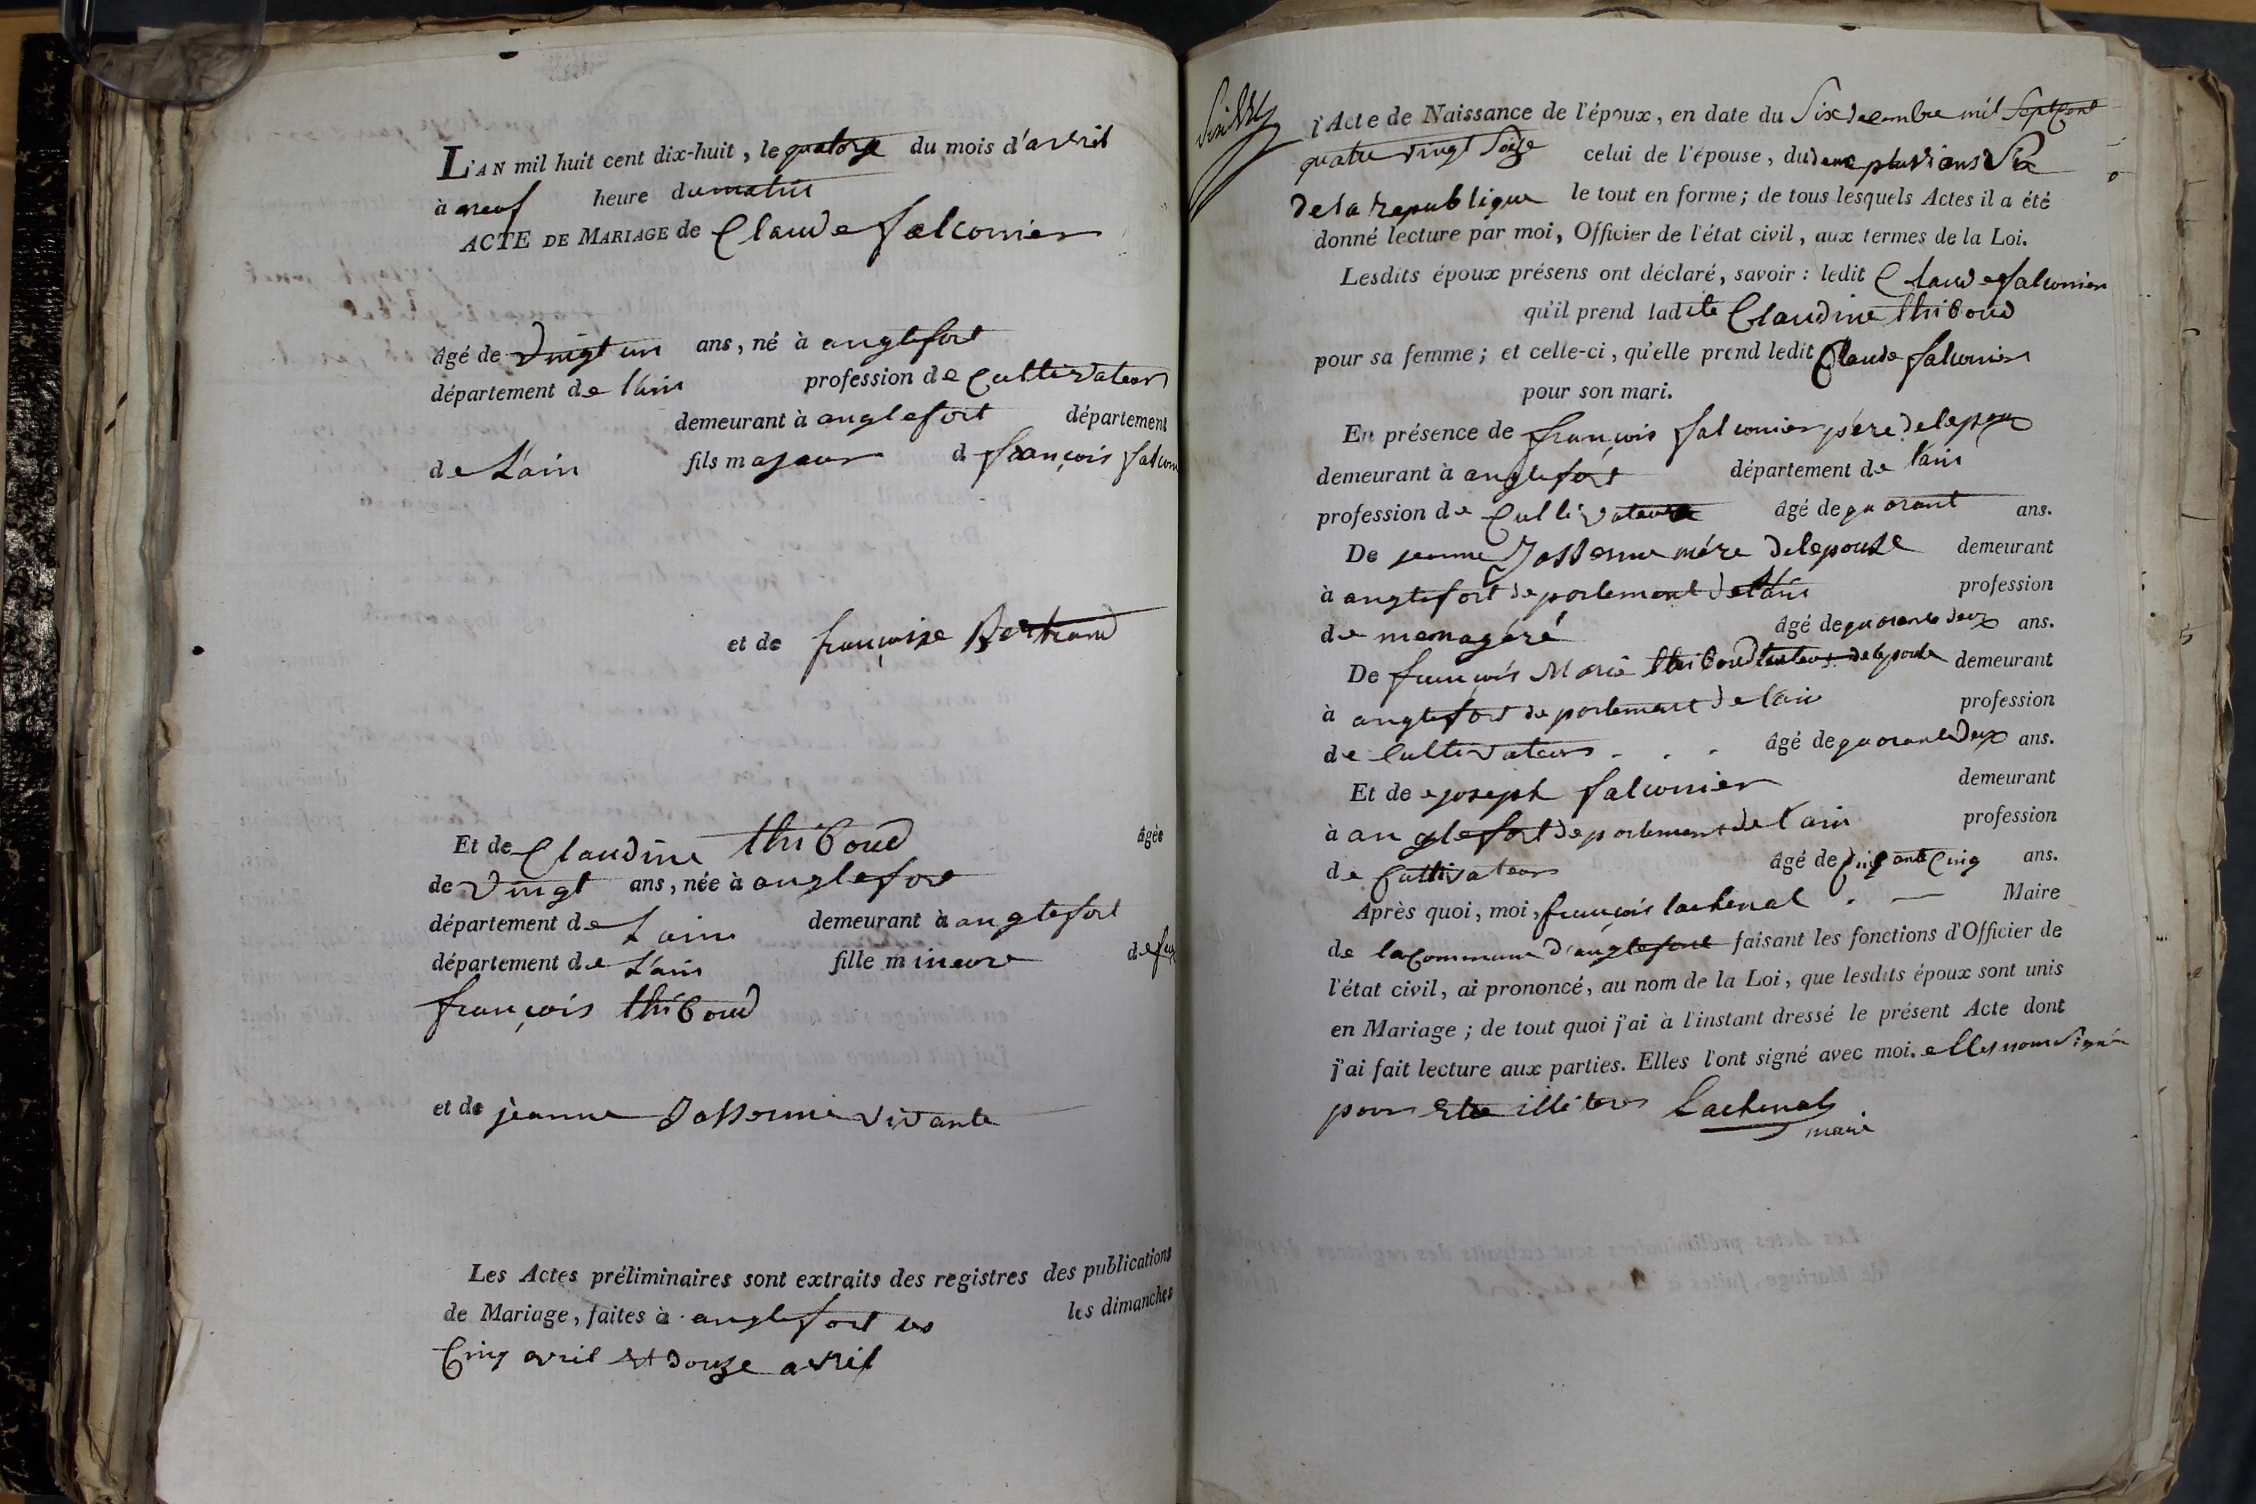 L'AN mil huit cent dix-huit, le quatorze du mois d'avril
à neuf heure du matin
ACTE DE MARIAGE de Claude falconnier
âgé de vingt un ans, né à anglefort
département de l'ain profession de Cultivateur
demeurant à anglefort département
de L'ain fils majeur d françois falcon
et de françoise Bertrand
Et de Claudine thiboud âgée
de vingt ans, née à anglefort
département de L'ain demeurant à anglefort
département de L'ain fille mineure de feu
françois thiboud
et de jeanne Jasserme vivante
Les Actes préliminaires sont extraits des registres des publications
de Mariage, faites à anglefort les les dimanches
Cinq avril et douze avril
l'Acte de Naissance de l'époux, en date du Six decembre mil Sept Cent
quatre vingt Seize celui de l'épouse, du pluvians Six
de la republique le tout en forme; de tous lesquels Actes il a été
donné lecture par moi, Officier de l'état civil, aux termes de la Loi.
Lesdits époux présens ont déclaré, savoir: ledit Claude falconnier
qu'il prend ladite Claudine thiboud
pour sa femme; et celle-ci, qu'elle prend ledit Claude falconnier
pour son mari.
En présence de françois falconnier père de lepoux
demeurant à anglefort département de l'ain
profession de Cultivateur âgé de quarant ans.
De jeanne Jasserme mére de lepouse demeurant
à anglefort departement de l'ain profession
de menagéré âgé de quarante deux ans.
De françois Marie thiboud tuteur de lepouse demeurant
à anglefort departement de l'ain profession
de Cultivateur âgé de quarante deux ans.
Et de joseph falconnier demeurant
à anglefort departement de l'ain profession
de Cultivateur âgé de Cinquante Cinq ans.
Après quoi, moi, françois lachenal Maire
de la Commune d'anglefort faisant les fonctions d'Officier de
l'état civil, ai prononcé, au nom de la Loi, que lesdits époux sont unis
en Mariage; de tout quoi j'ai à l'instant dressé le présent Acte dont
j'ai fait lecture aux parties. Elles l'ont signé avec moi. elles nont Signé
pour etre illiterés Lachenal
maire